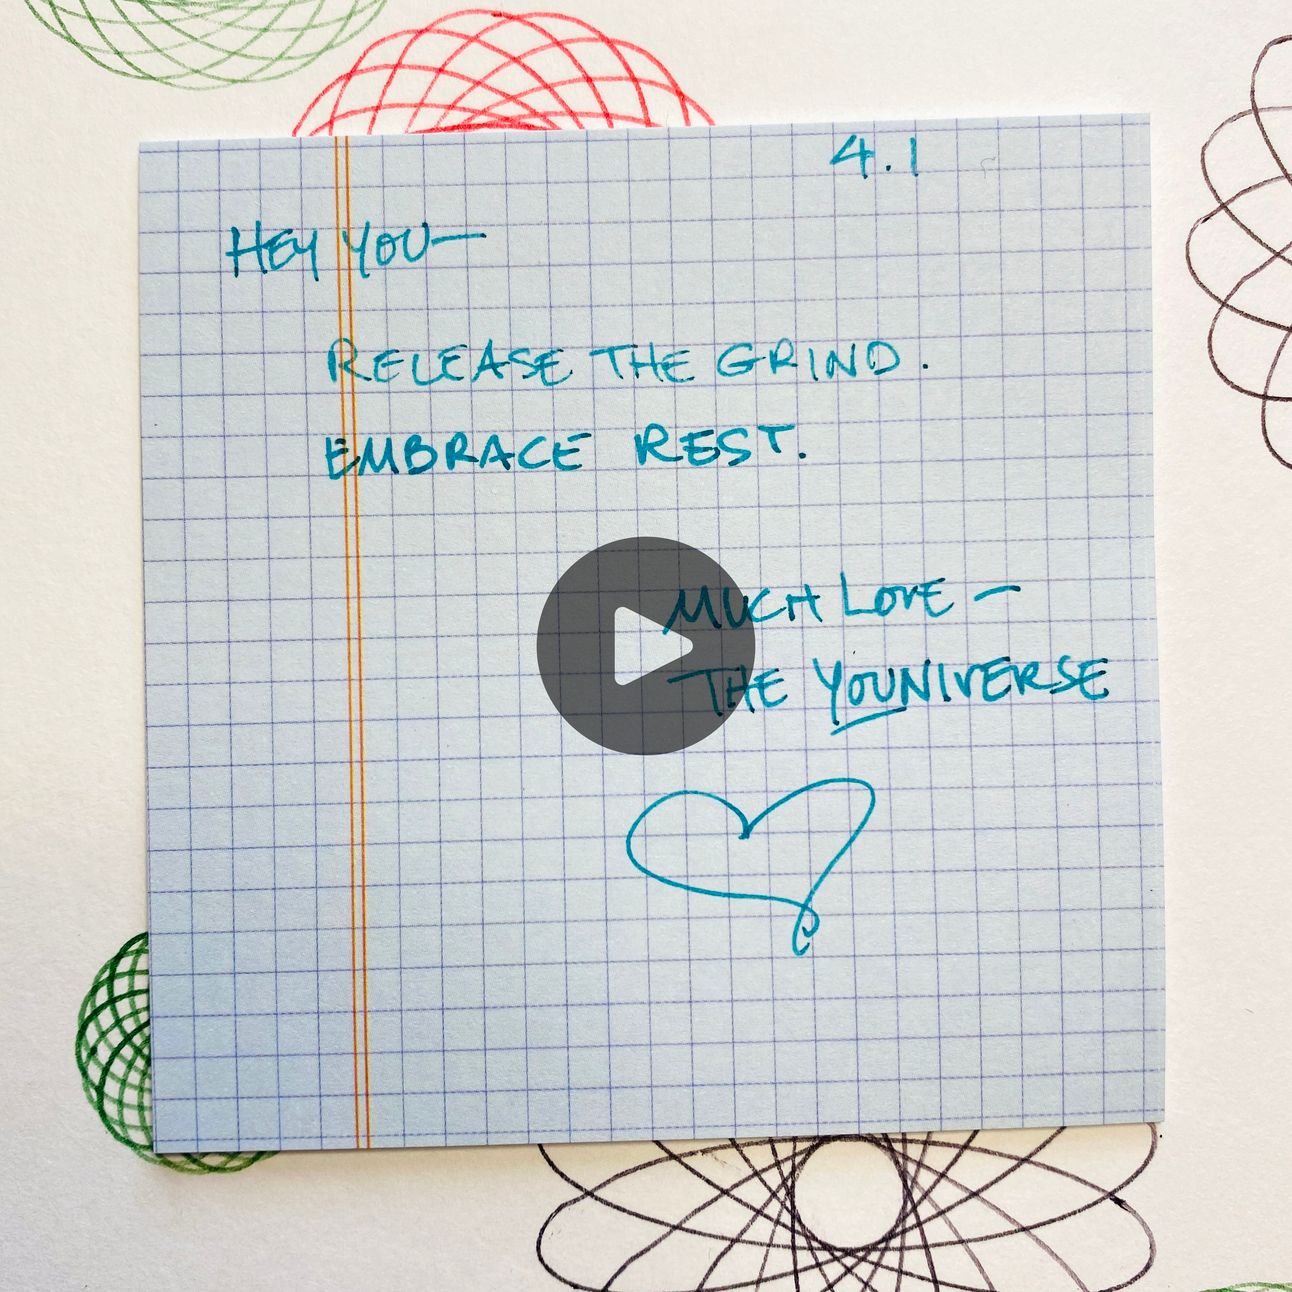 4.1
HEY YOU—
RELEASE THE GRIND.
EMBRACE REST.
MUCH LOVE —
THE YOUNIVERSE